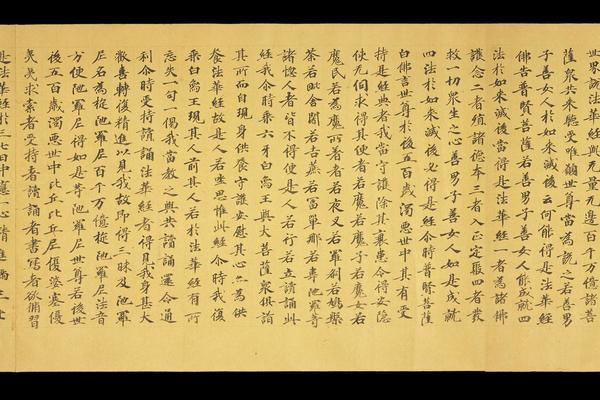 世界說法華經與無量無邊百千万億諸菩
薩眾共來聽受唯願世尊當為說之若善男
子善女人於如來滅後云何能得是法華經
佛告普賢菩薩若善男子善女人能成就四
法於如來滅後當得是法華經一者為諸佛
護念二者殖諸德本三者入正定聚四者發
救一切眾生之心善男子善女人如是成就
四法於如來滅後必得是經尒時普賢菩薩
白佛言世尊於後五百歲濁惡世中其有受
持是經典者我當守護除其衰患令得安隱
使无伺求得其便者若魔若魔子若魔女若
魔民若為魔所著者若夜叉若羅剎若鳩槃
荼若毗舍闍若吉蔗若富單那若韋陀羅等
諸惱人者皆不得便是人若行若立讀誦此
經我尒時乘六牙白象王與大菩薩眾俱詣
其所而自現身供養守護安慰其心亦為供
養法華經故是人若坐思惟此經尒時我復
乘白象王現其人前其人若於法華經有所
忘失一句一偈我當教之與共讀誦還令通
利尒時受持讀誦法華經者得見我身甚大
歡喜轉復精進以見我故即得三昧及陀羅
尼名為旋陀羅尼百千万億旋陀羅尼法音
方便陀羅尼得如是等陀羅尼世尊若後世
後五百歲濁惡世中比丘比丘尼優婆塞優
婆夷求索者受持者讀誦者書寫者欲脩習
是法華經於三七日中應一心精進滿三七